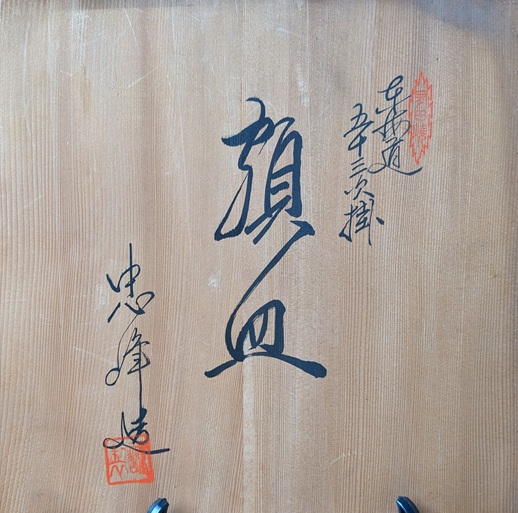 東海道
五十三次掛
額皿
忠峰造